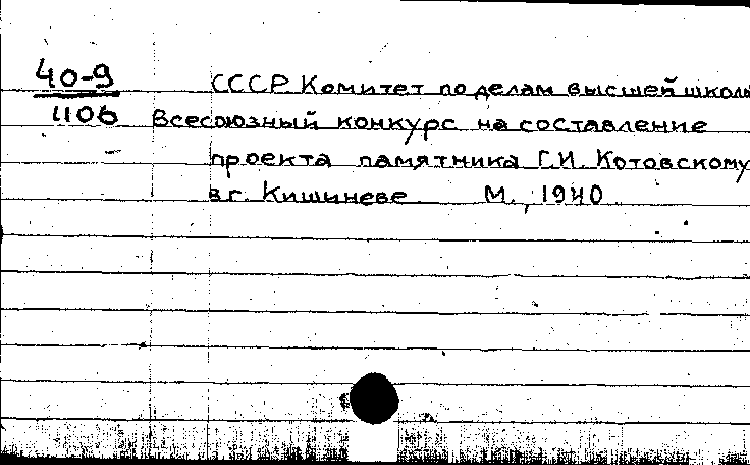 40-9 СССР Комитет по делам высшей школы
1106 Всесоюзный конкурс на составление
проекта памятника Г.И. Котовскому
в г. Кишиневе М., 1940.